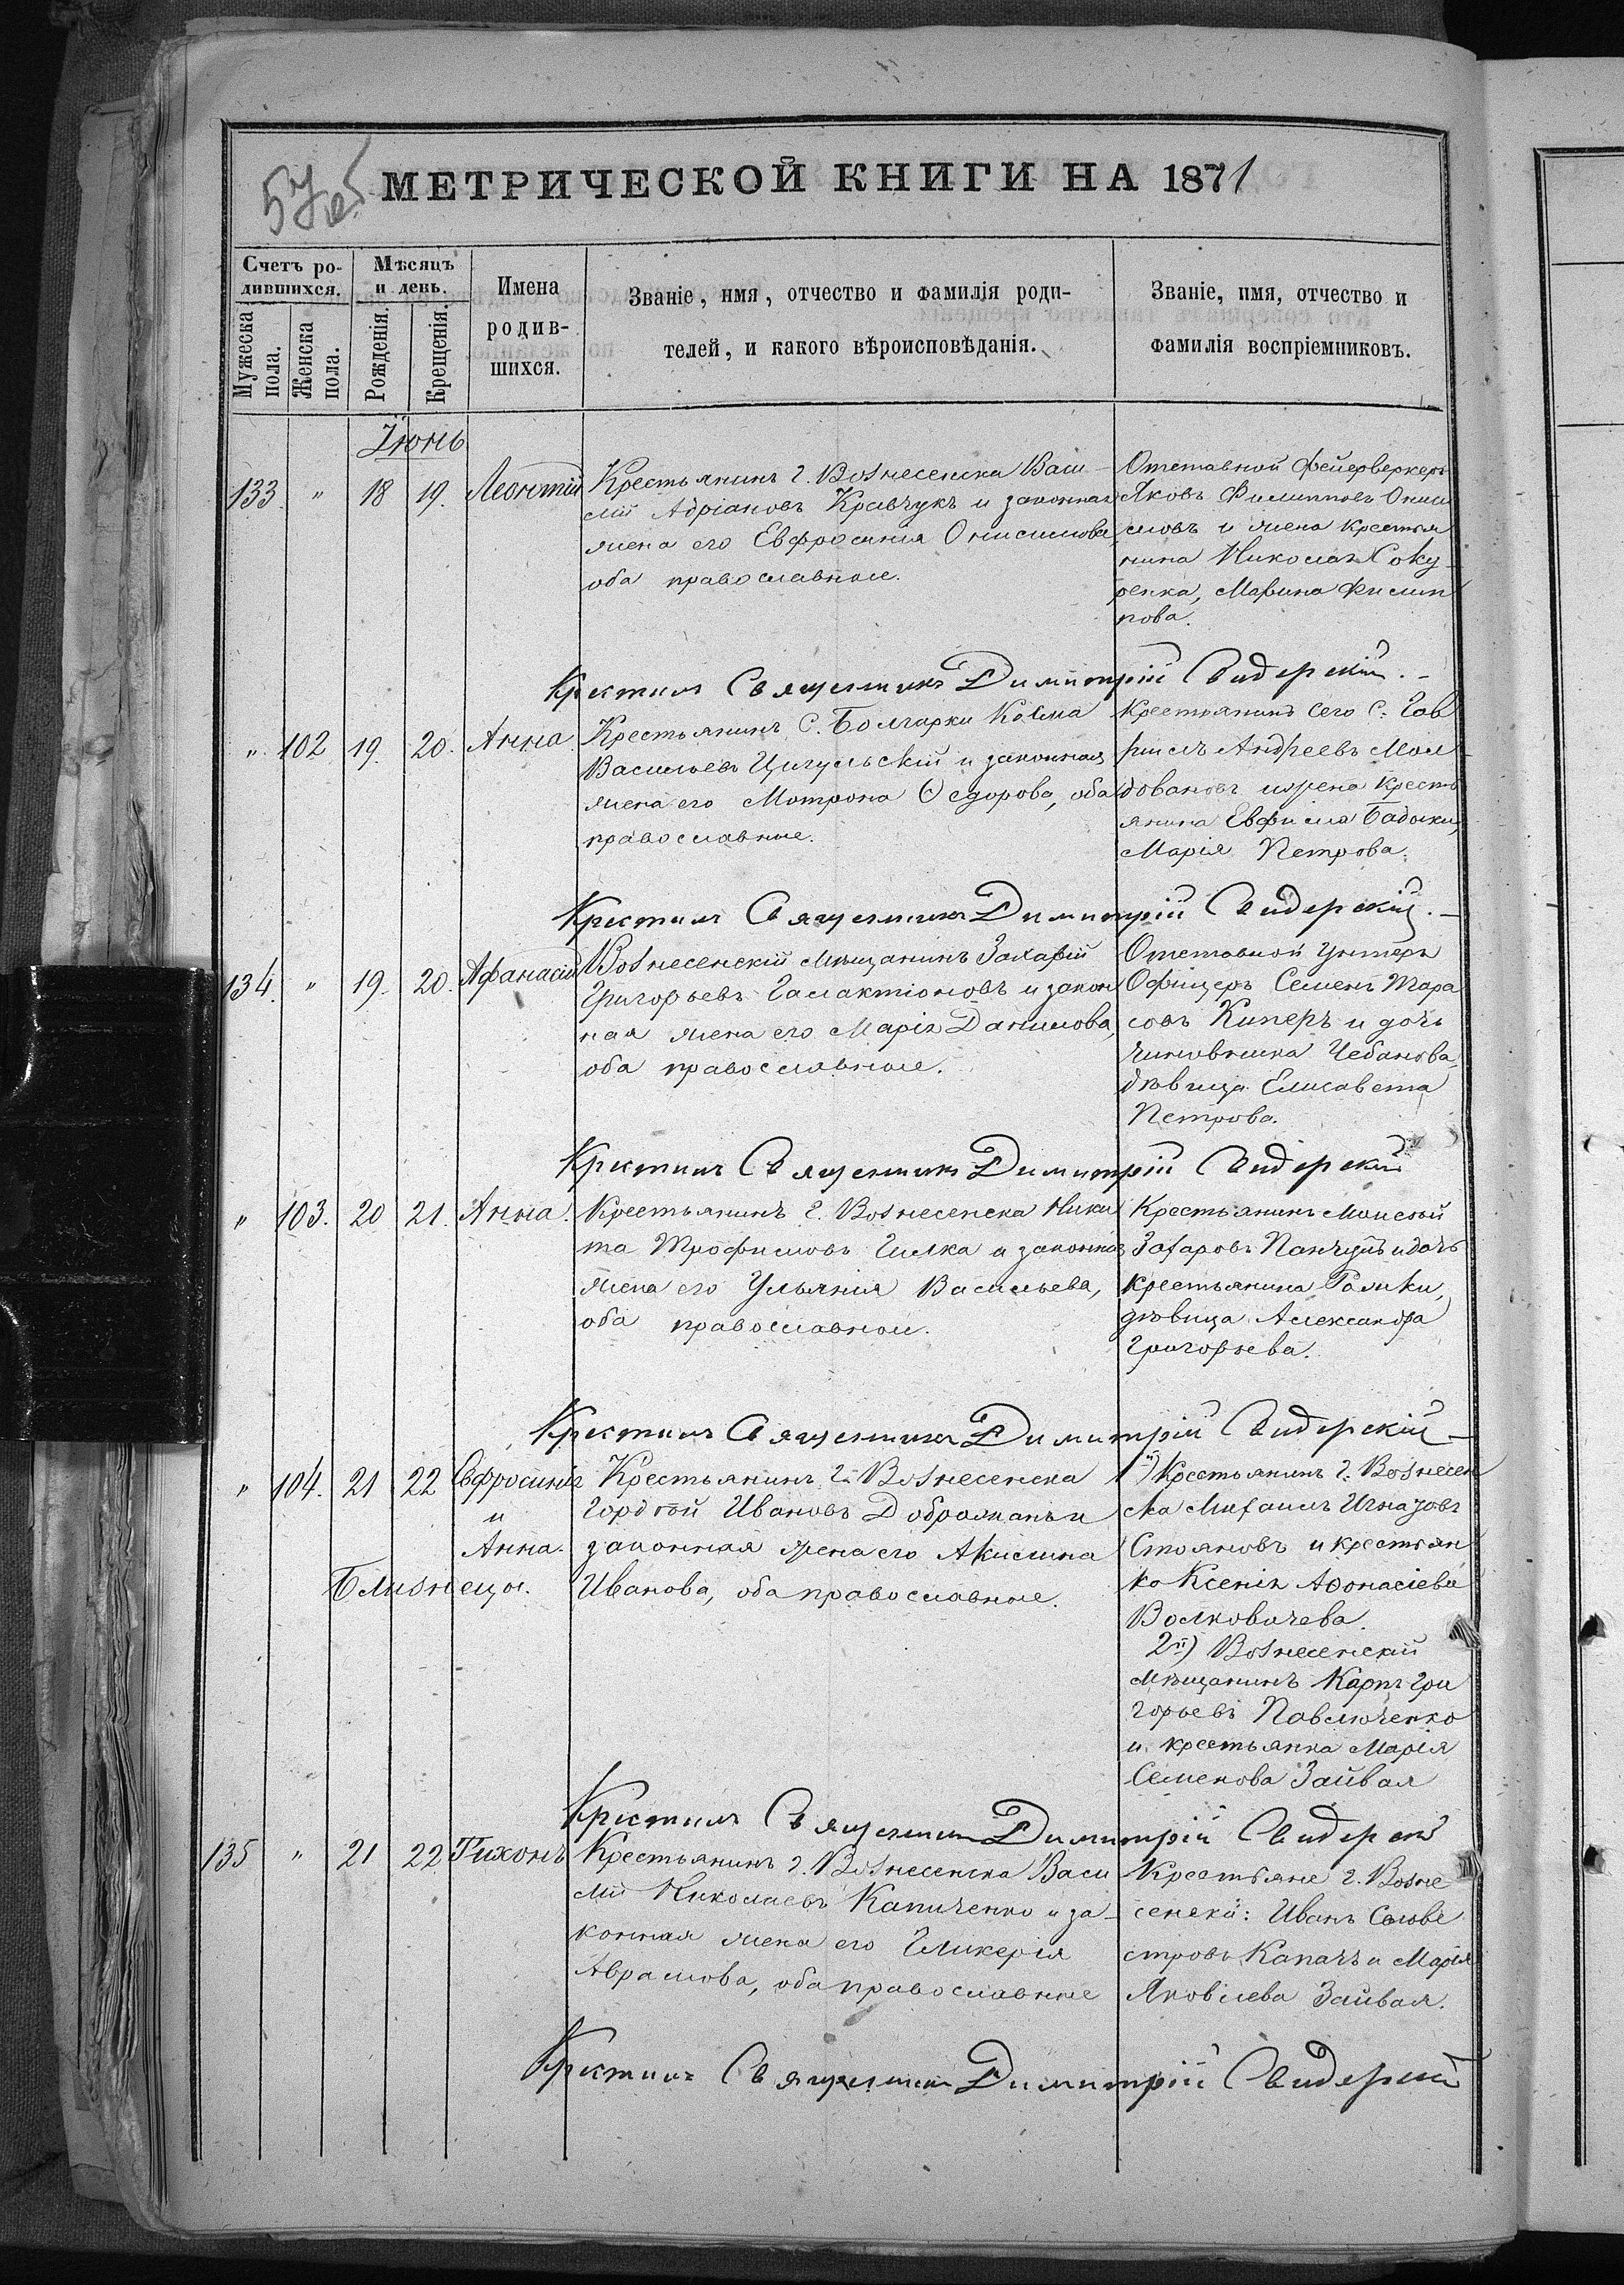 МЕТРИЧЕСКОЙ КНИГИ НА 1871
Счетъ ро-
дившихся.
Мужеска пола.
Женска пола.
Мѣсяцъ
и день.
Рожденія.
Крещенія.
Имена
родив-
шихся.
Званіе, имя, отчество и фамилія роди-
телей, и какого вѣроисповѣданія.
Званіе, имя, отчество и
фамилія воспріемниковъ.
Іюнь
133 " 18 19. Леонтій
Крестьянинъ г. Вознесенска Васи-
лій Адріановъ Кравчукъ и законная
жена его Евфросинія Онисимова
оба православные.
Отставной фейерверкеръ
Яковъ Филипповъ Они
симовъ и жена крестья
нина Николая Соку-
ренка, Марина Филип
пова.
Крестилъ Священникъ Димитрій Свидерскій.-
" 102 19. 20. Анна
Крестьянинъ С. Болгарки Козма
Васильевъ Цигульскій и законная
жена его Мотрона Ѳедорова, оба
православные.
Крестьянинъ сего С: Гав
риилъ Андреевъ Мол-
довановъ и жена кресть
янина Евфимія
Марія Петрова.
Крестилъ Священникъ Димитрій Свидерскій.-
134. " 19. 20. Афанасій
Вознесенскій мѣщанинъ Захарій
Григорьевъ Галактіоновъ и закон
ная жена его Марія Данилова,
оба православные.
Отставной унтеръ
Офицеръ Семенъ Тара
совъ Киперъ и дочь
чиновника Чебанова
дѣвица Елисавета
Петрова.
Крестилъ Священникъ Димитрій Свидерскій
" 103. 20 21. Анна.
Крестьянинъ г. Вознесенска Ники
та Трофимовъ Гилка и законная
жена его Ульянія Васильева,
оба православные.
Крестьянинъ Моисей
Захаровъ и дочь
крестьянина Галики,
дѣвица Александра
Григорьева.
Крестилъ Священникъ Димитрій Свидерскій-
" 104. 21 22 Евфросинія
и
Анна.
Близнецы.
Крестьянинъ г. Вознесенска
Гордѣй Ивановъ Доброжанъ и
законная жена его Акилина
Иванова, оба православные.
1й) Крестьянинъ г. Вознесен
ска Михаилъ Игнатовъ
Стояновъ и крестьян
ка Ксенія Аѳонасіева
Волковичева.
2й) Вознесенскій
мѣщанинъ Карпъ Гри
горьевъ Павлюченко
и крестьянка Марія
Семенова Зайвая
Крестилъ Священникъ Димитрій Свидерскій
135 " 21 22 Тихонъ
Крестьянинъ г. Вознесенска Васи
лій Николаевъ Капиченко и за-
конная жена его Гликерія
Аврамова, оба православные
Крестьяне г. Возне
сенска: Иванъ Сильве
стровъ Капачъ и Марія
Яковлева Зайвая.
Крестилъ Священникъ Димитрій Свидерскій